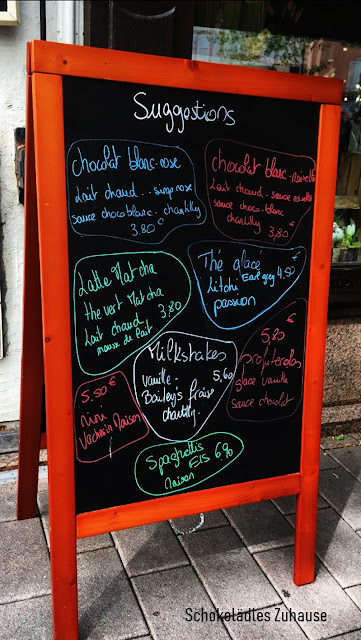 Suggestions
chocolat blanc-rose
Lait chaud.. sirop rose
sauce choco blanc. chantilly
3,80 €
chocolat blanc-noisette
Lait chaud-sauce noisette
sauce choco-blanc-
chantilly
3,80 €
Latte Matcha
the vert Matcha
Lait chaud
mousse de lait
3,80
Thé glace
litchi Earl grey 4,50 €
passion
Milkshakes
vanille. 5,60
Bailey's fraise
chantilly.
5,50 €
mini
Maison
5,80 €
profiteroles
glace vanille
sauce chocolat
Spaghettis
EIS 6,90
maison
Schokolädles Zuhause